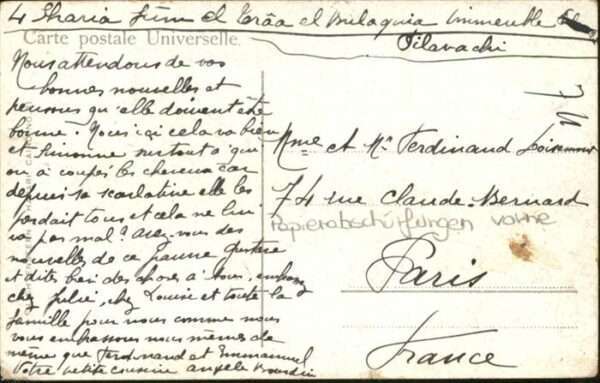 4 Sharia Fûm el Torâa el Bulaquia Immeuble
Pilavachi
Carte postale Universelle.
Nous attendons de vos
bonnes nouvelles et
pensons qu'elle doivent être
bonne. Nous ici cela va bien
et Simonne surtout à qui
on à coupés les cheveux car
depuis sa scarlatine elle les
perdait tous et cela ne lui
va pas mal? avez vous des
nouvelles de ce pauvre Gustave
et dites bien des choses à tous,
chez Julie, chez Louise et toute la
famille pour nous comme nous
vous embrassons nous mêmes de
mêmes que Ferdinand et Emmanuel
Votre petite cousine Angèle Bourdin
Mme et Mr Ferdinand
74 rue Claude-Bernard
Papierabschürfungen vorne
Paris
France